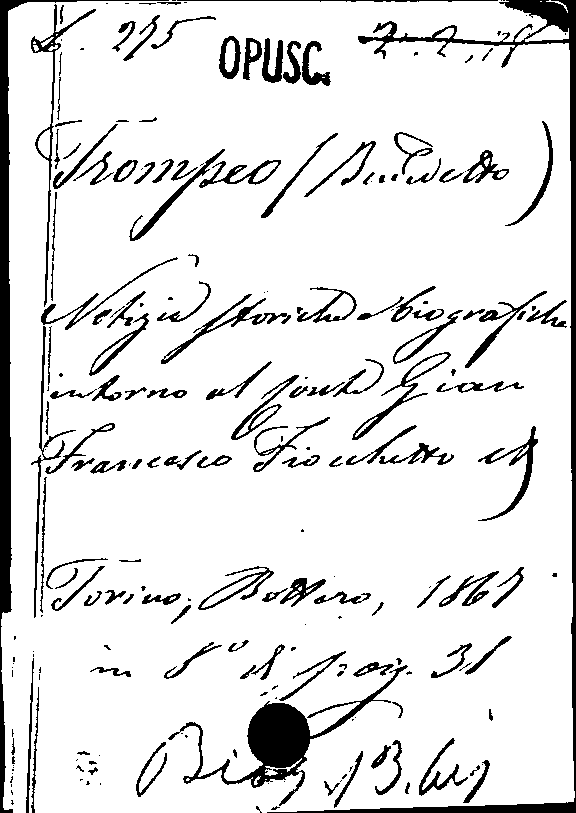 L. 275 OPUSC. 2. 2, 78
Trompeo (Benedetto)
Notizie storiche biografiche
intorno al conte Gian
Francesco Fiochetto etc)
Torino, Bottero, 1867
in 8º di pag. 31